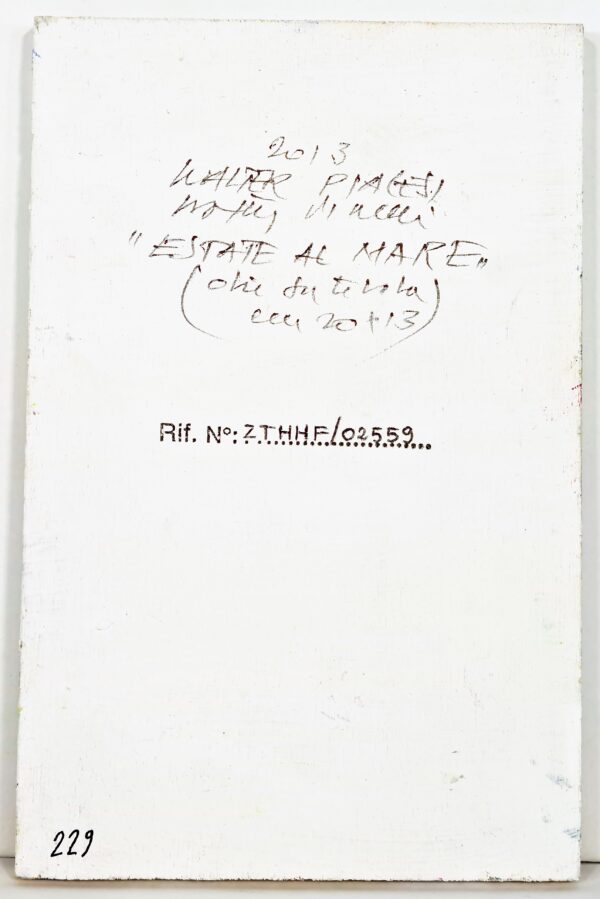 2013
WALTER PIACESI
"ESTATE AL MARE"
(olio su tavola
cm 20+13)
Rif. N°: ZTHHF/02559
229